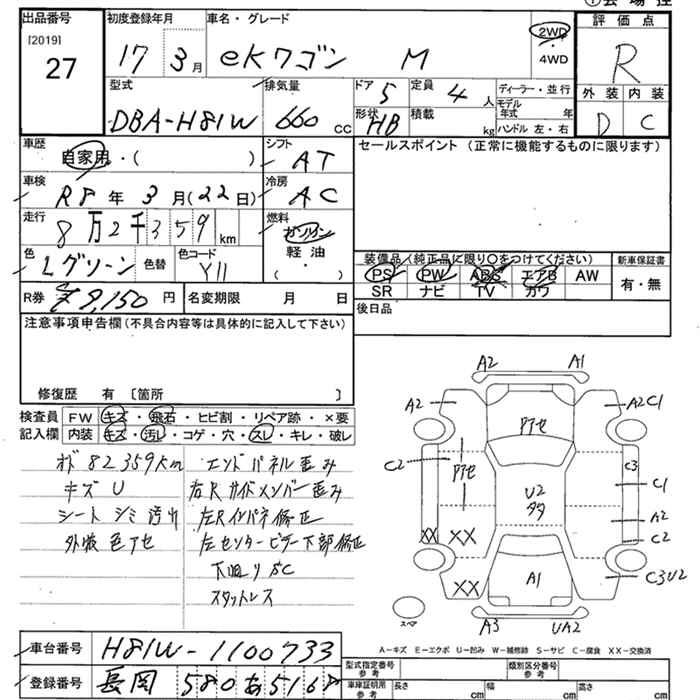 出品番号
[2019]
27
初度登録年月
17 3月
車名・グレード
eKワゴン M
2WD
・
4WD
評価点
R
外装 内装
D C
型式
DBA-H81W
排気量
660 cc
ドア 5
定員 4人
形状 HB
積載 kg
ディーラー・並行
モデル年式 年
ハンドル 左・右
車歴
自家用・( )
シフト
AT
セールスポイント (正常に機能するものに限ります)
車検
R8年 3月(22日)
冷房
AC
走行
8万2千359km
燃料
ガソリン
軽油
( ・ )
色
Lグリーン
色替
色コード
Y11
装備品(純正品に限り○をつけてください)
PS PW ABS エアB AW
SR ナビ TV カワ
新車保証書
有・無
R券
9,150円
名変期限 月 日
後日品
注意事項申告欄(不具合内容等は具体的に記入して下さい)
修復歴 有 [箇所 ]
検査員
記入欄
FW キズ・飛石・ヒビ割・リペア跡・×要
内装 キズ・汚レ・コゲ・穴・スレ・キレ・破レ
オド 82359km
キズ U
シート シミ 汚れ
外装 色アセ
エンドパネル歪み
右Rサイドメンバー歪み
左Rインパネ修正
左センターピラー下部修正
下回り SC
スタットレス
A2 A1
A2 A2 C1
アアセ
C2 アアセ C3
C1
U2
タタ
A2
XX XX C2
XX A1 C3U2
スペア
A3 UA2
A-キズ E-エクボ U-凹み W-補修跡 S-サビ C-腐食 XX-交換済
車台番号
H81W-1100733
登録番号
長岡 580 あ 5168
型式指定番号
参考
類別区分番号
参考
車庫証明用
参考
長さ cm
幅 cm
高さ cm